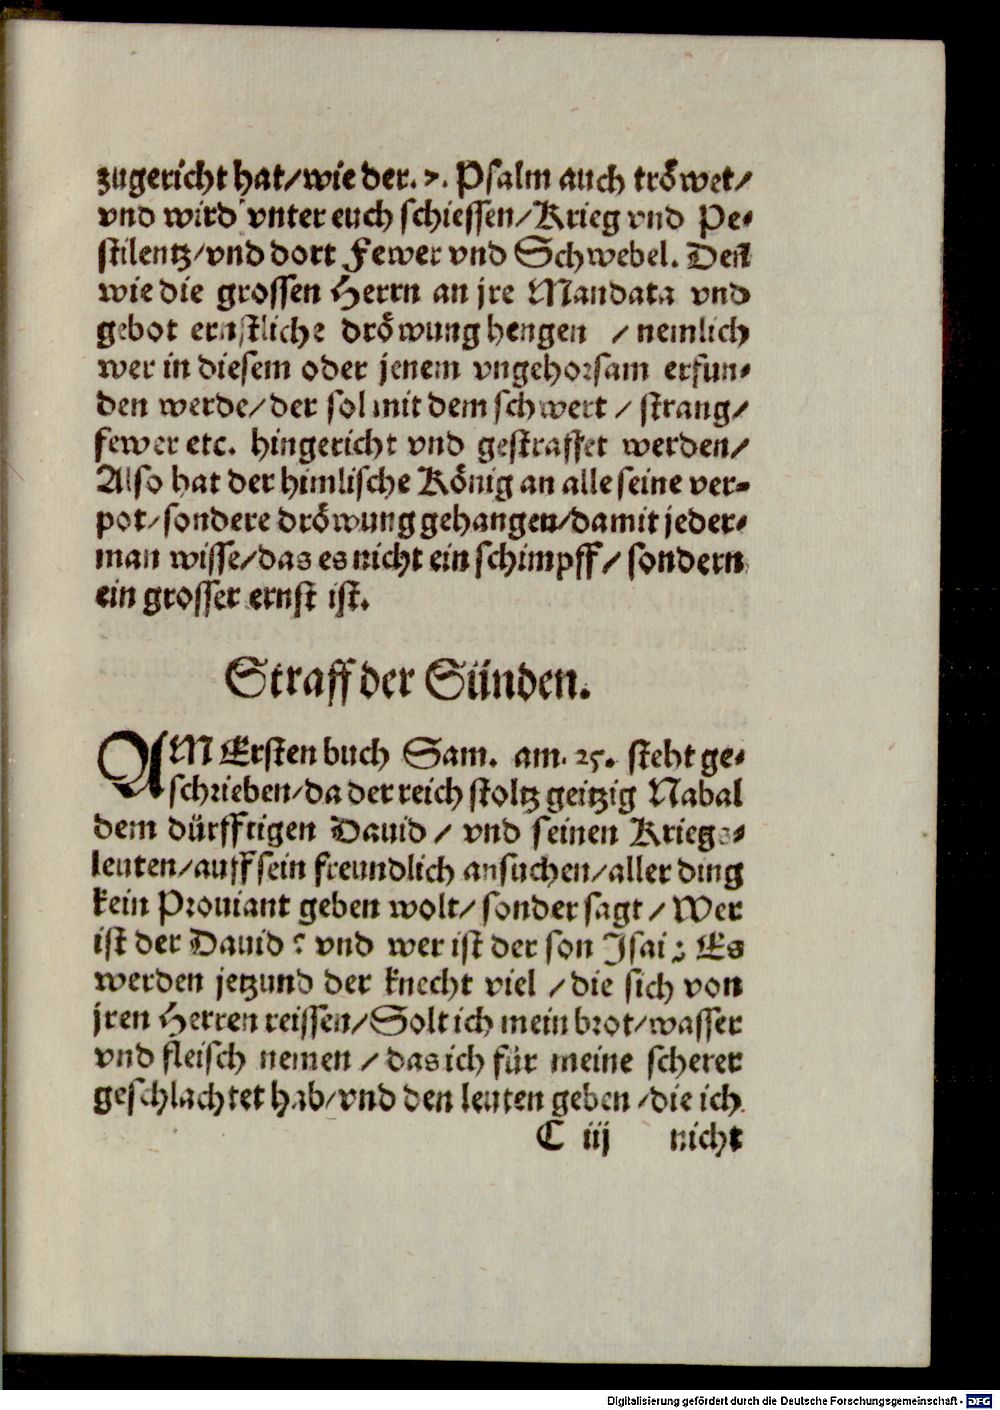 zugericht hat/wie der. 7. Psalm auch tröwet/
vnd wird vnter euch schiessen/Krieg vnd Pe-
stilentz/vnd dort Fewer vnd Schwebel. Deñ
wie die grossen Herrn an jre Mandata vnd
gebot ernstliche dröwung hengen / nemlich
wer in diesem oder jenem vngehorsam erfun-
den werde/der sol mit dem schwert / strang/
fewer etc. hingericht vnd gestraffet werden/
Also hat der himlische König an alle seine ver-
pot/sondere dröwung gehangen/damit jeder-
man wisse/das es nicht ein schimpff/ sondern
ein grosser ernst ist.
Straff der Sünden.
AM Ersten buch Sam. am. 25. steht ge-
schrieben/da der reich stoltz geitzig Nabal
dem dürfftigen Dauid / vnd seinen Kriegs-
leuten/auff sein freundlich ansuchen/aller ding
kein Prouiant geben wolt/ sonder sagt / Wer
ist der Dauid? vnd wer ist der son Jsai? Es
werden jetzund der knecht viel /die sich von
jren Herren reissen/Solt ich mein brot/wasser
vnd fleisch nemen / das ich für meine scherer
geschlachtet hab/vnd den leuten geben /die ich
C iij nicht
Digitalisierung gefördert durch die Deutsche Forschungsgemeinschaft - DFG